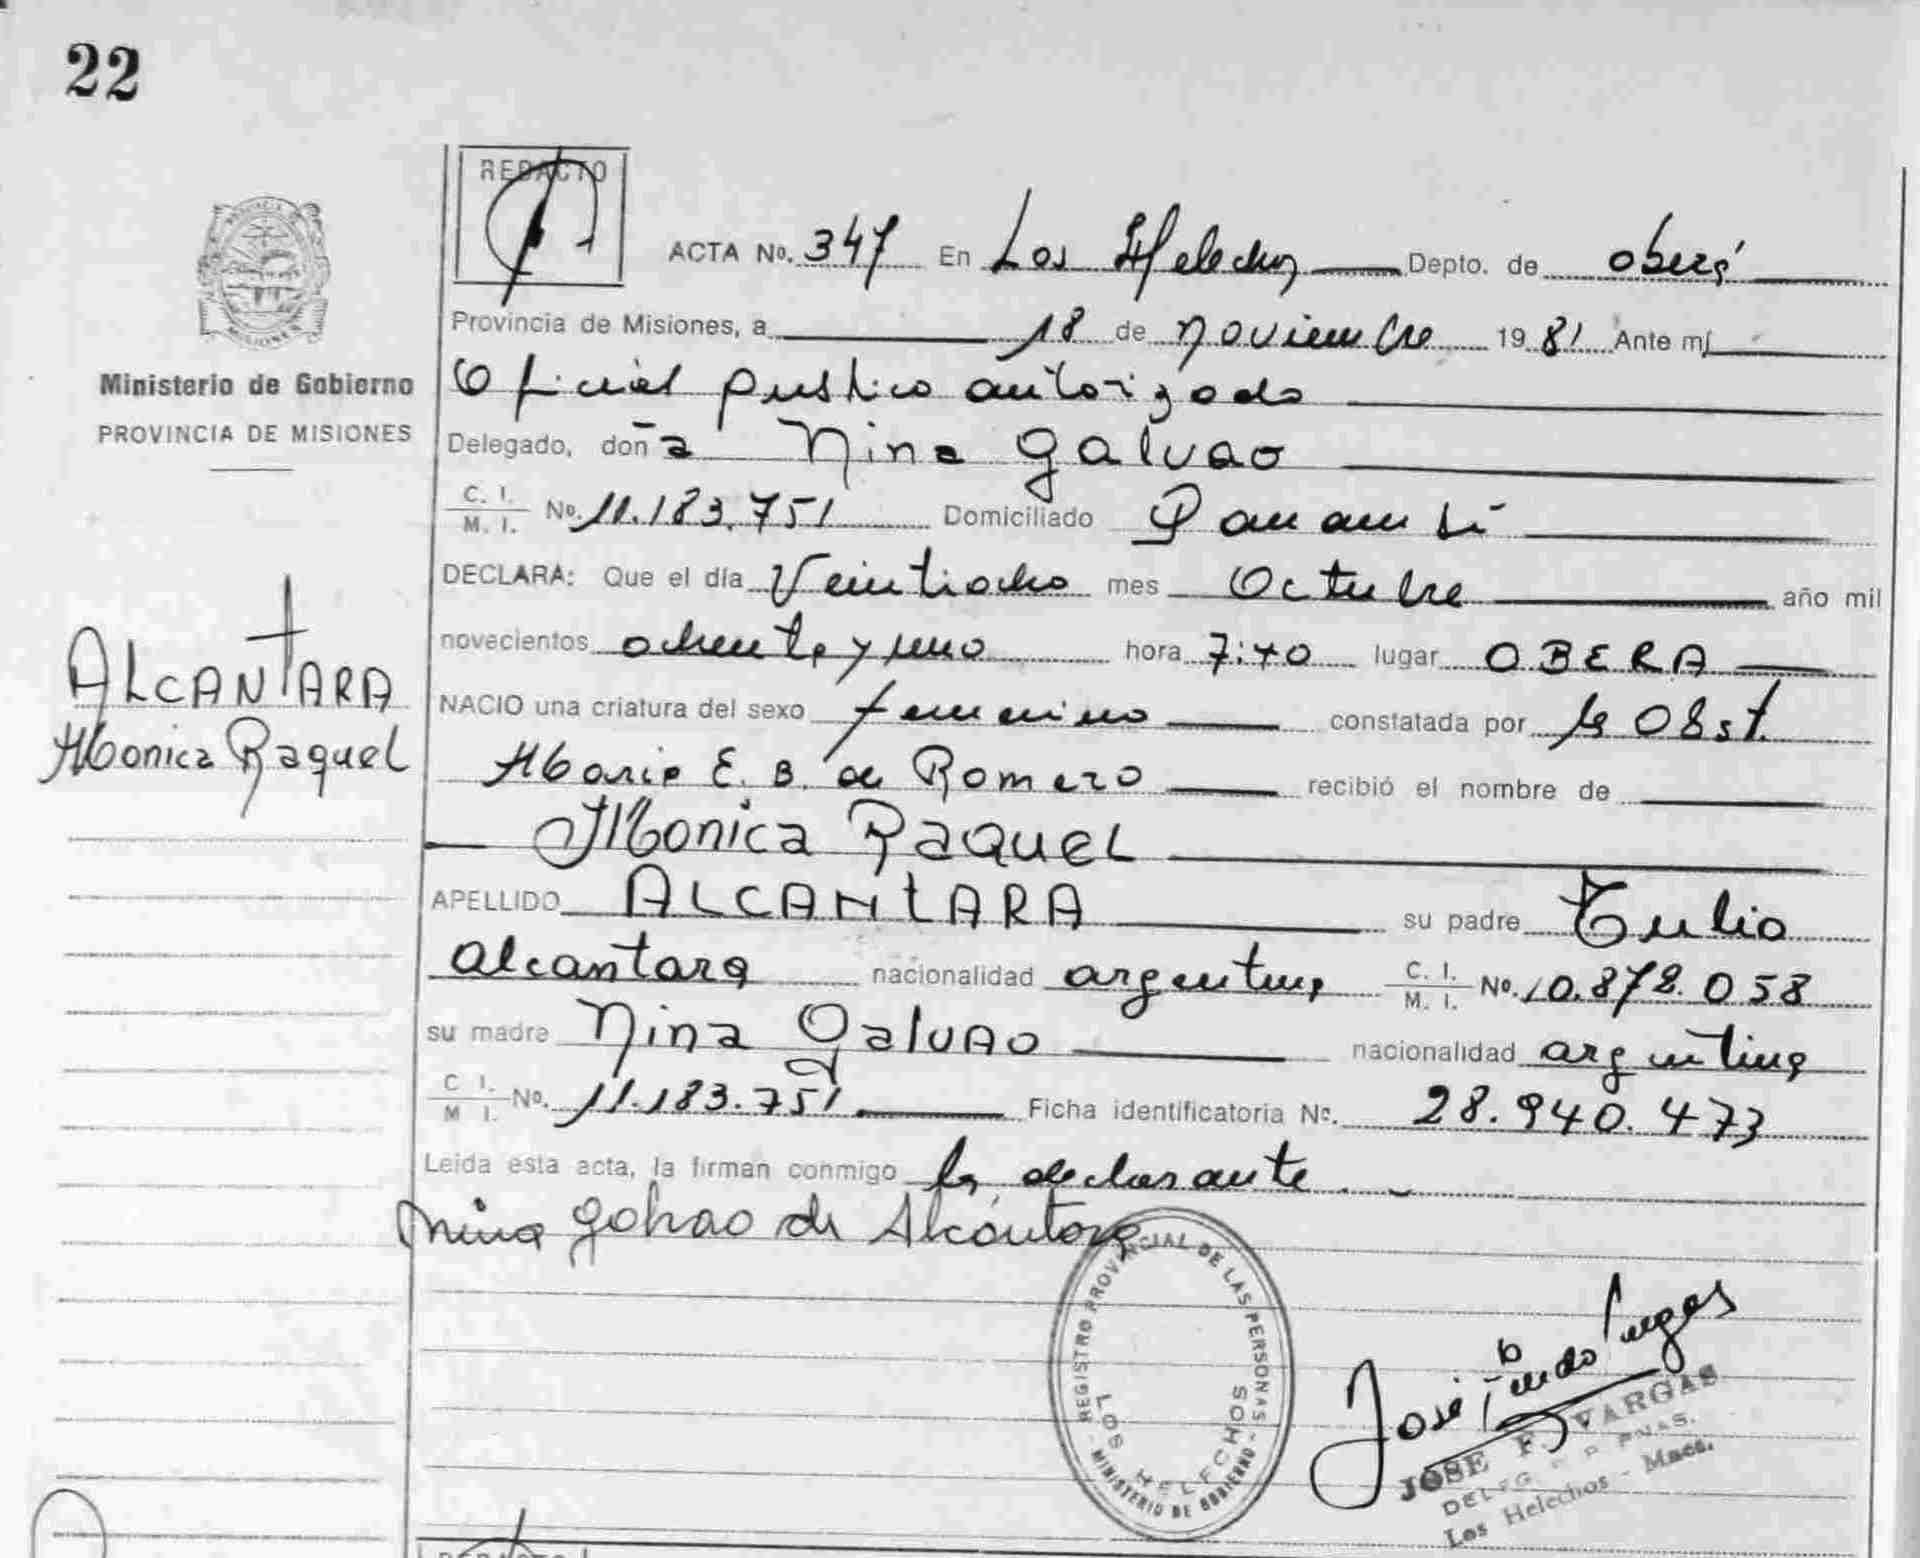 22
REDACTO
ACTA No. 347 En Los Helechos Depto. de Oberá
Provincia de Misiones, a 18 de noviembre 1981 Ante mí
Oficial publico autorizado
Ministerio de Gobierno
PROVINCIA DE MISIONES
Delegado, doña Nina Galvao
C. I. M. I. No. 11.183.751 Domiciliado Panambí
DECLARA: Que el día Veintiocho mes Octubre año mil
novecientos ochenta y uno hora 7:40 lugar OBERA
NACIO una criatura del sexo femenino constatada por la Obst.
ALCANTARA
Monica Raquel
Maria E. B. de Romero recibió el nombre de
Monica Raquel
APELLIDO ALCANTARA su padre Tulio
Alcantara nacionalidad argentina C. I. M. I. No. 10.872.058
su madre Nina Galvao nacionalidad argentina
C I. M I. No. 11.183.751 Ficha identificatoria No. 28.940.473
Leida esta acta, la firman conmigo la declarante
Nina Galvao de Alcántara
REGISTRO PROVINCIAL DE LAS PERSONAS - MINISTERIO DE GOBIERNO -
LOS HELECHOS
José Vargas
JOSE F. VARGAS
DELEG. R. P. PNAS.
Los Helechos - Mnes.
REDACTO